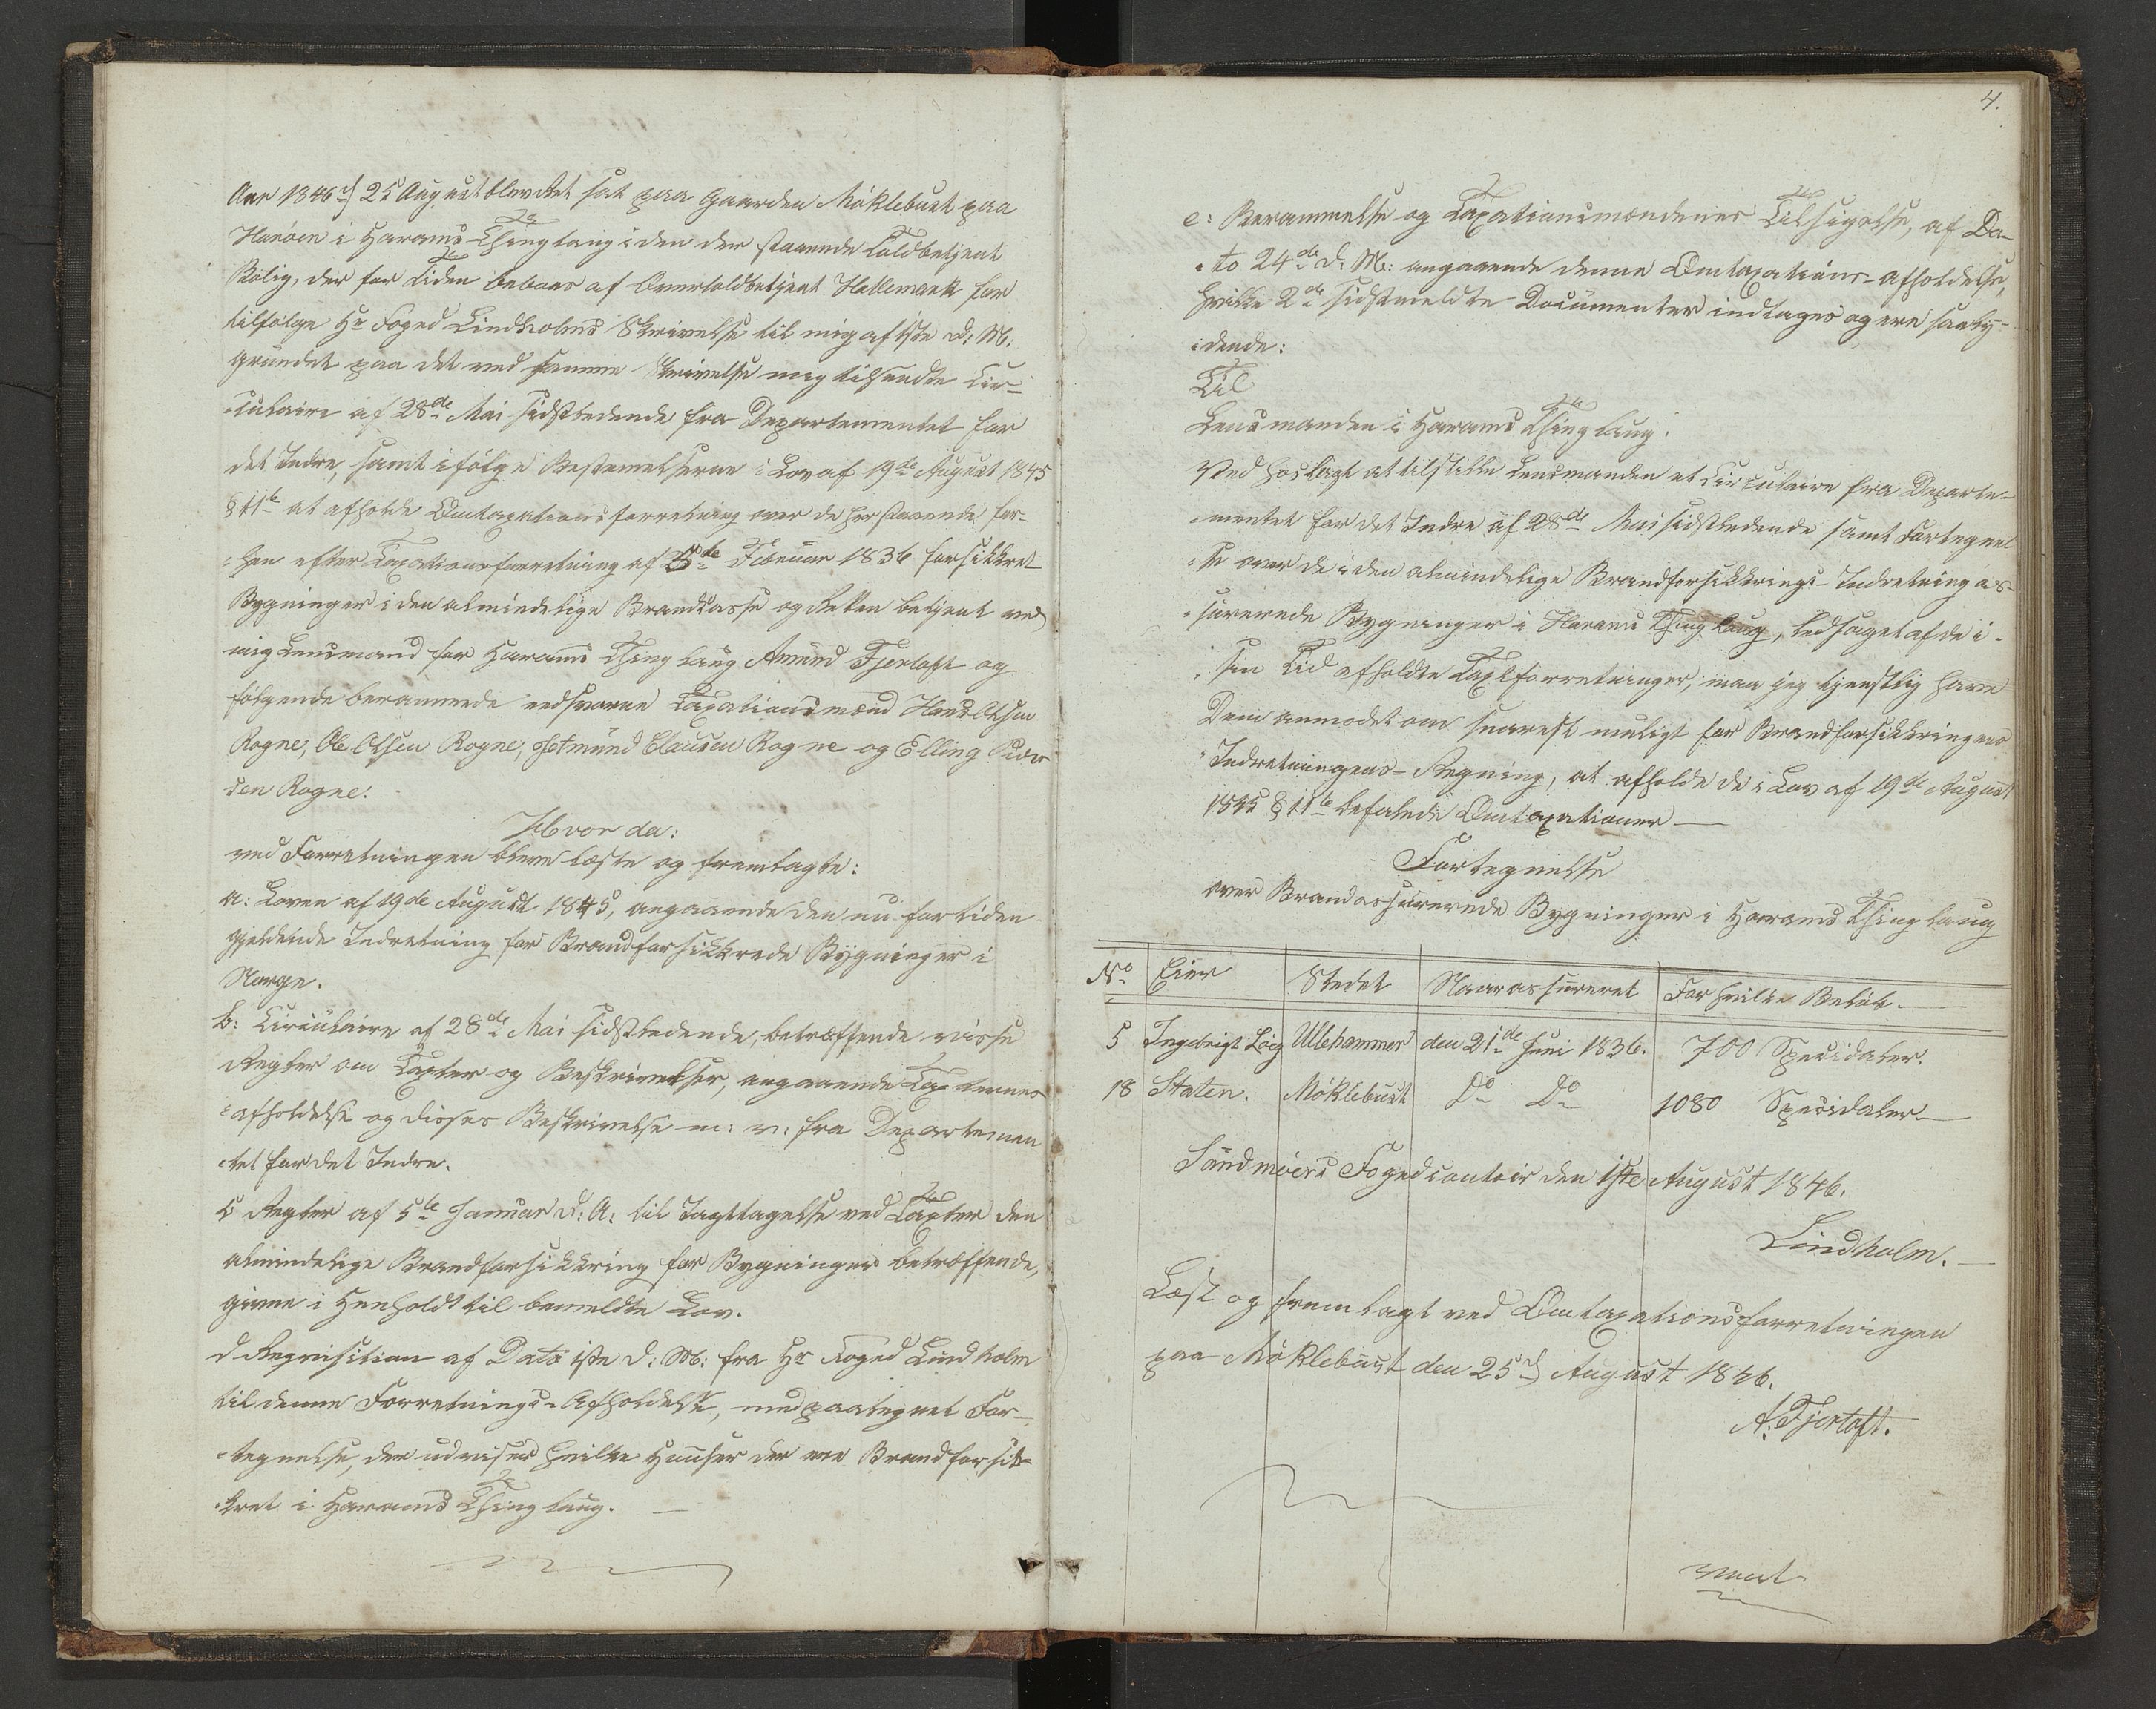 Aar 1846 d 25 August blev Ret sat paa Gaarden Möklebust paa
Haröen i Harams Thinglaug i den der staaende Toldbetjent
Bolig, der for Tiden beboes af Overtoldbetjent Hallemark for
tilfölge Hr Foged Lindholms Skrivelse til mig af 1ste d: M:
grundet paa det med samme Skrivelse mig tilsendte Cir-
culaire af 28de Mai sidstledende fra Departementet for
det Indre, samt ifölge Bestemelserne i Lov af 19de August 1845
§ 11te at afholde Omtaxationsforretning over de her staaende for-
hen efter Taxationsforretning af 5te Januar 1836 forsikkret
Bygninger i den almindelige Brandkasse og Retten betjent ved
mig Lensmand for Harams Thinglaug Amund Fjertoft og
fölgende beramede eedsvorne Taxationsmænd Hans Olsen
Rogne, Ole Olsen Rogne, Clausen Rogne og Elling
sen Rogne.
Hvor da:
ved Forretningen bleve læste og fremlagte:
a: Loven af 19de August 1845, angaaende den nu for tiden
gjeldende Indretning for Brandforsikkrede Bygninger i
Norge.
b: Circulaire af 28de Mai sidstledende, betræffende visse
Regler om Taxter og Beskrivelser, angaaende Taxternes
afholdelse og disses Beskrivelse m: v: fra Departemen
tet for det Indre.
c Regler af 5te Januar d: A: til Iagttagelse ved Taxter den
almindelige Brandforsikkring for Bygninger betræffende,
givne i Henhold til bemeldte Lov.
d Reqvisition af Dato 1ste d: M: fra Hr Foged Lindholm
til denne Forretnings-Afholdelse, med paategnet For-
tegnelse, der udviser hvilke Huuser der ere Brandforsik-
kret i Harams Thinglaug.
4.
e: Berammelse og Taxationsmændenes Tilsigelse, af Da-
to 24de d: M: angaaende denne Omtaxations-afholdelse,
hvilke 2de sidstmeldte Documenter indtages og ere saaly-
dende:
Til
Lensmanden i Harams Thinglaug.
Ved hoslagt at tilstille Lensmanden et Circulaire fra Departe-
mentet for det Indre af 28de Mai sidstledende samt Fortegnel
se over de i den almindelige Brandforsikkrings-Indretning as-
surerede Bygninger i Harams Thinglaug, ledsaget af de i
sin Tid afholdte Taxtforretninger, maa jeg tjenstlig have
Dem anmodet om snarest muligt for Brandforsikkringens
Indretningens-Regning, at afholde de i Lov af 19de August
1845 § 11te befalede Omtaxationer
Fortegnelse
over Brandassurerede Bygninger i Harams Thinglaug
No Eier Stedet Naar assureret For hvilke Belöb.
5 Ingebrigt Ullehammer den 21de Juni 1836. 700 Specidaler.
18 Staten. Möklebust Do Do 1080 Specidaler
Söndmöers Fogedcontoir den 1ste August 1846.
Lindholm.
Læst og fremlagt ved Omtaxationsforretningen
paa Möklebust den 25d August 1846.
A. Fjertoft.